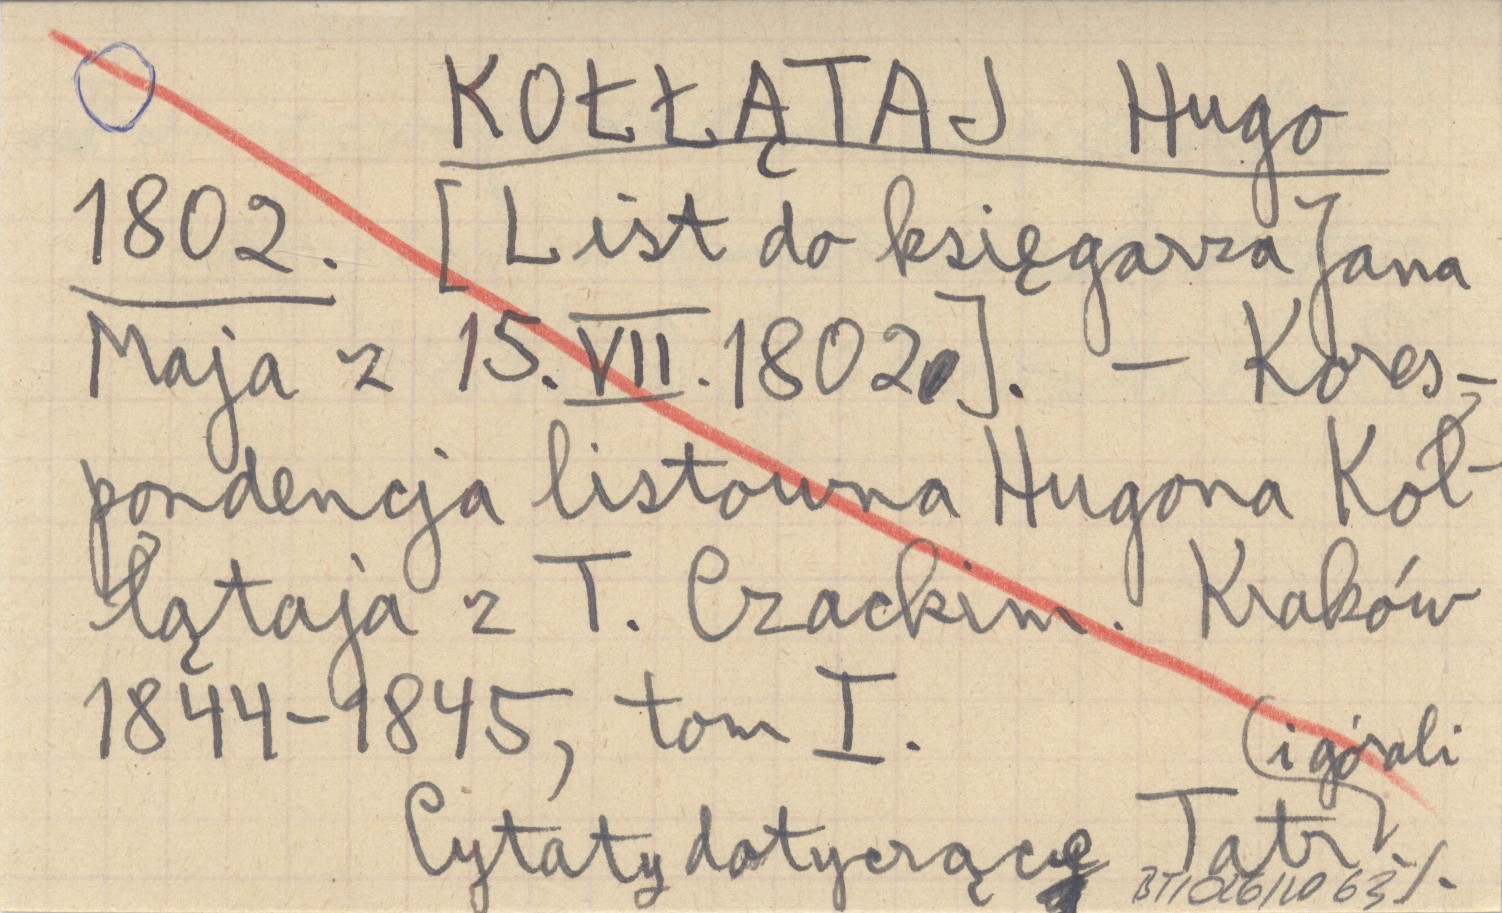 KOŁŁĄTAJ Hugo
1802. [List do księgarza Jana
Maja z 15.VII.1802]. – Kores-
pondencja listowna Hugona Koł-
łątaja z T. Czackim. Kraków
1844-1845, tom I.
(i górali
Cytaty dotyczące Tatr